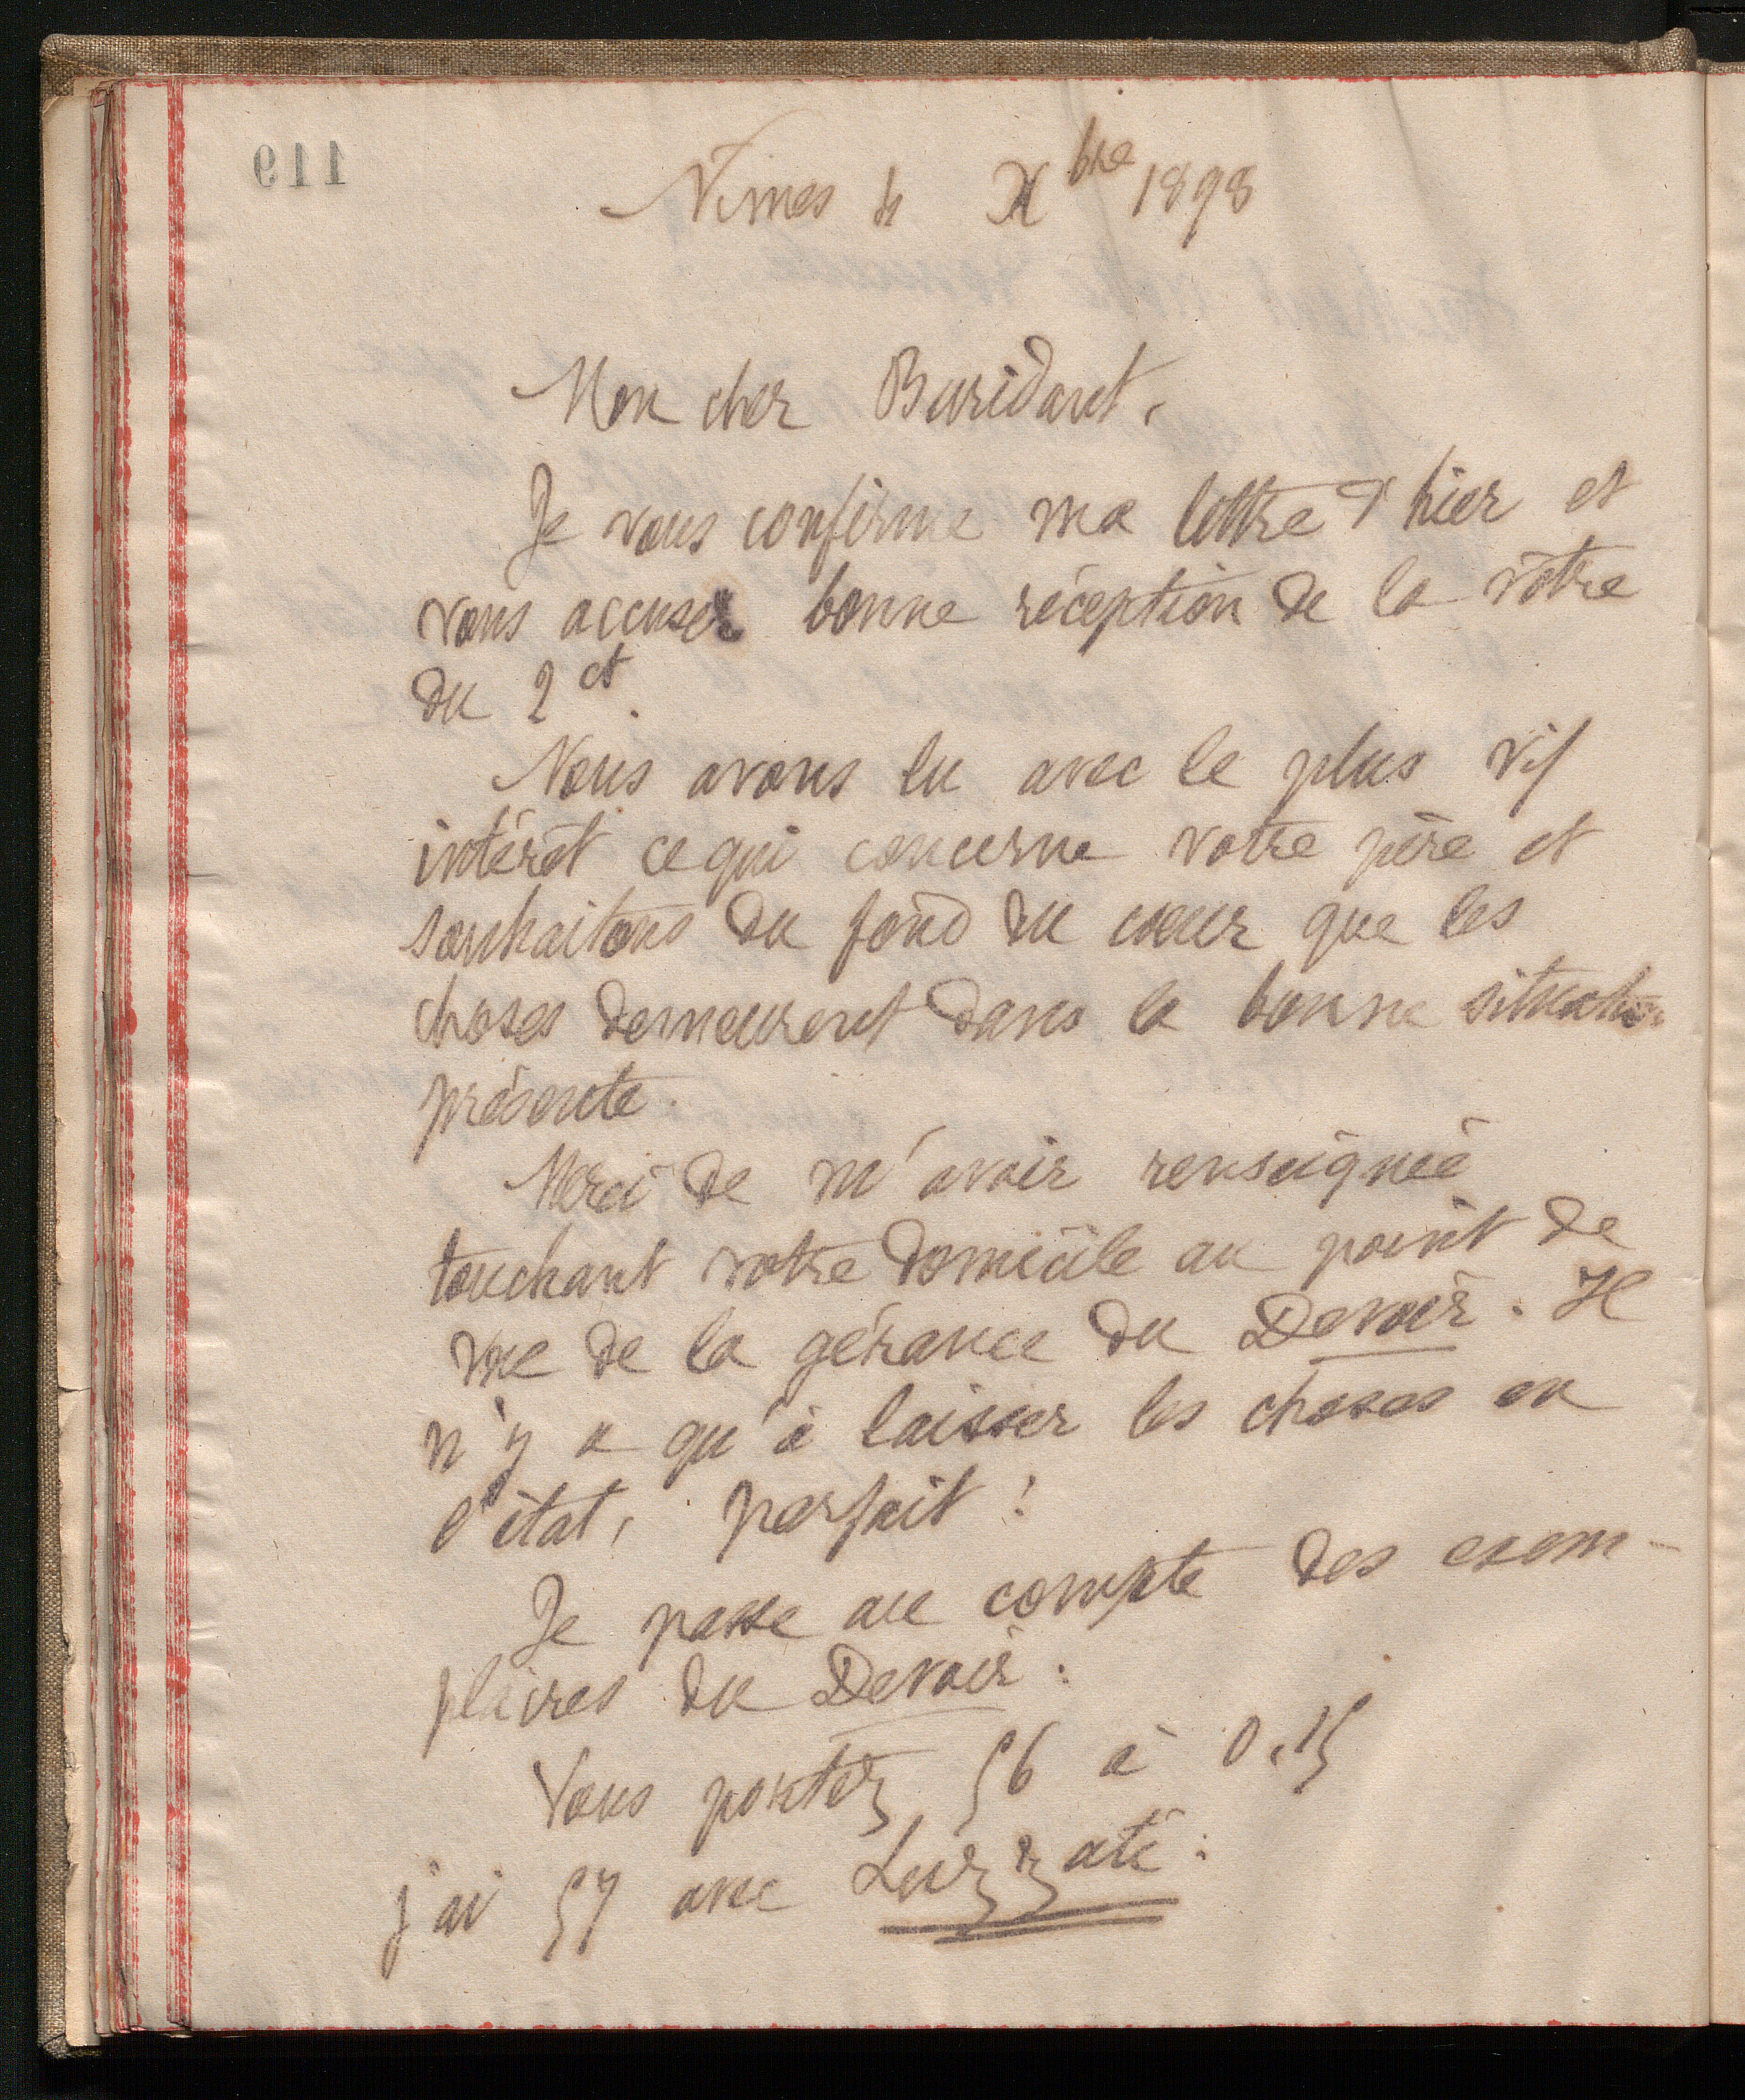 119
Nimes 4 Xbre 1898
Mon cher Buridant,
Je vous confirme ma lettre d'hier et
vous accuse bonne réception de la vôtre
du 2 ct.
Nous avons lu avec le plus vif
intérêt ce qui concerne votre père et
souhaitons du fond du cœur que les
choses demeurent dans la bonne situation
présente.
Merci de m'avoir renseignée
touchant votre domicile au point de
vue de la gérance du Devoir. Il
n'y a qu'à laisser les choses en
l'état, parfait !
Je passe au compte des exem-
plaires du Devoir :
Vous portez 56 à 0,15
j'ai 57 avec Luzzati :